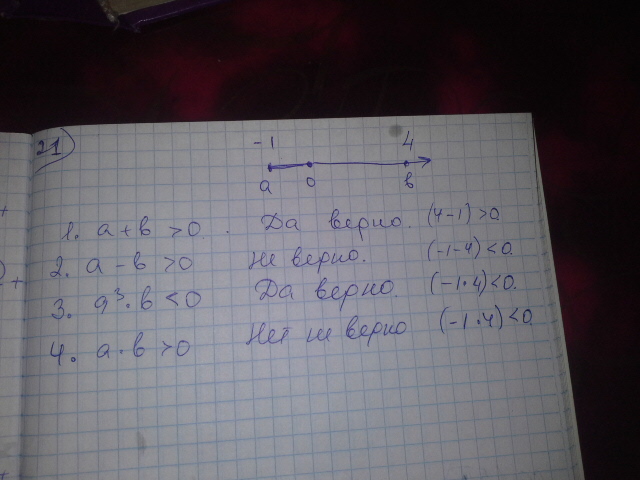 21)
-1 4
a 0 в
1. a + в > 0. Да верно. (4-1) > 0.
2. a - в > 0 Не верно. (-1-4) < 0.
3. a³ · в < 0 Да верно. (-1·4) < 0.
4. a · в > 0 Нет не верно (-1·4) < 0.